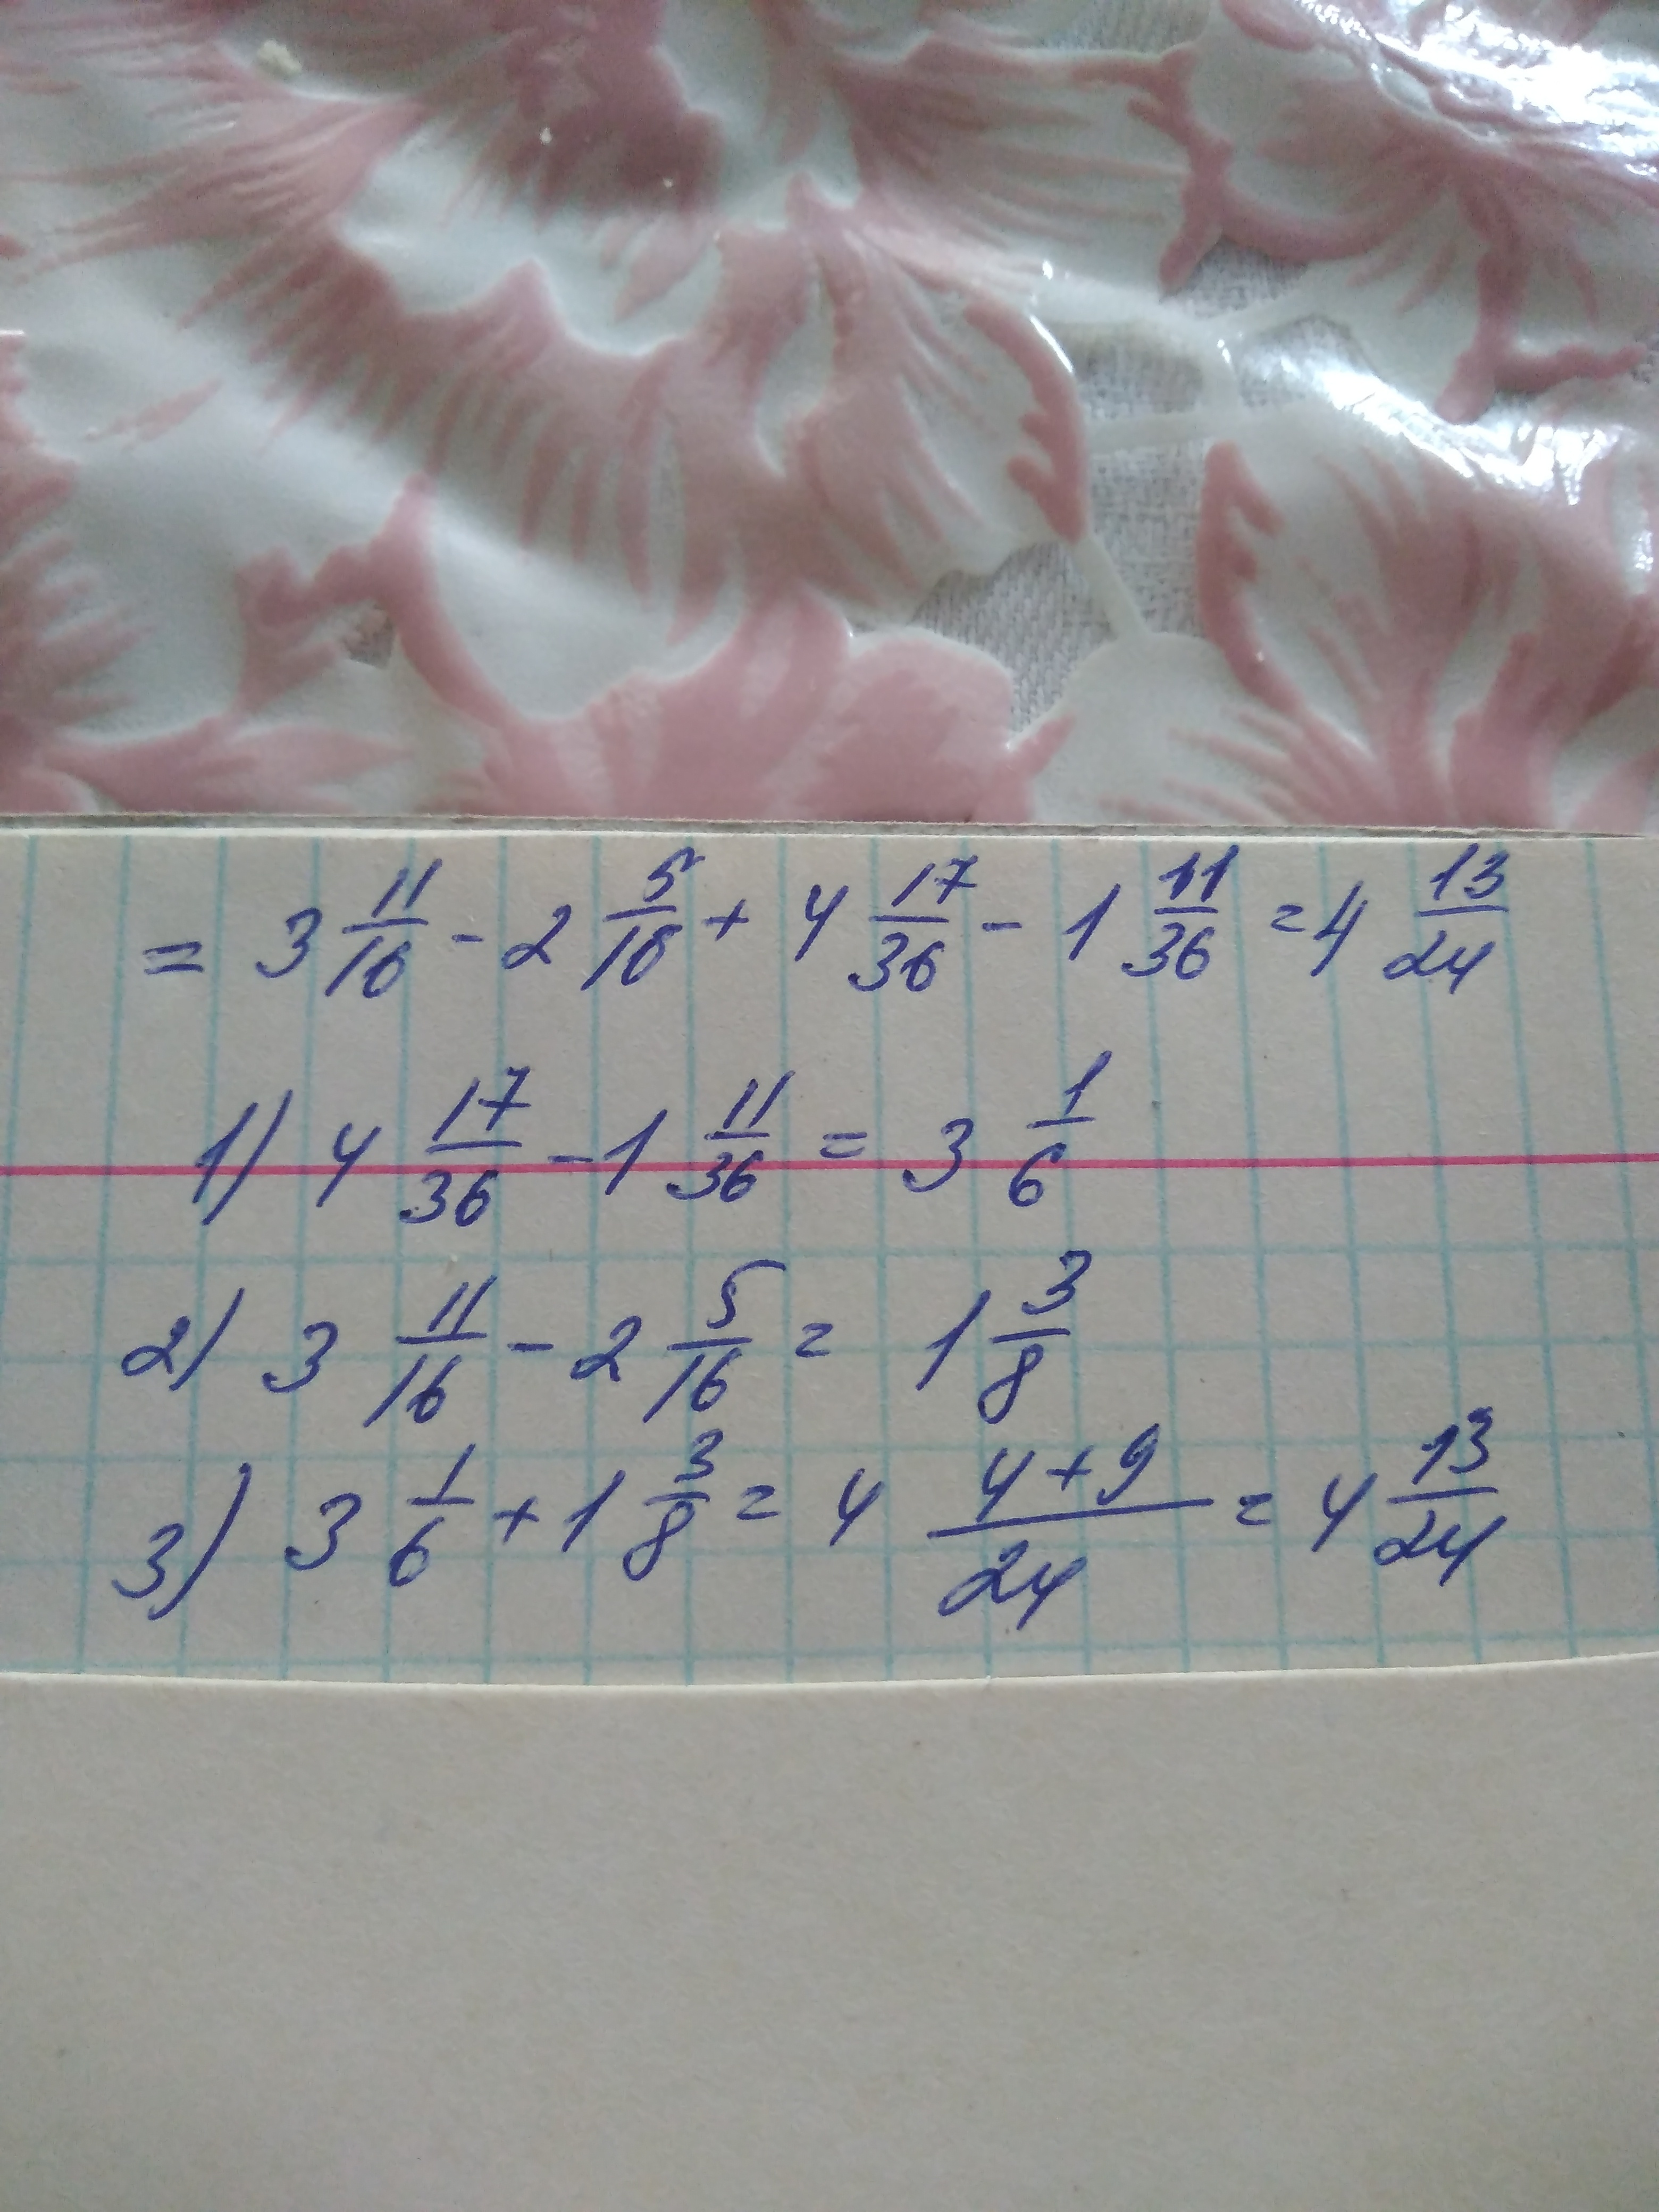 = 3 11/16 - 2 5/16 + 4 17/36 - 1 11/36 = 4 13/24
1) 4 17/36 - 1 11/36 = 3 1/6
2) 3 11/16 - 2 5/16 = 1 3/8
3) 3 1/6 + 1 3/8 = 4 4+9/24 = 4 13/24